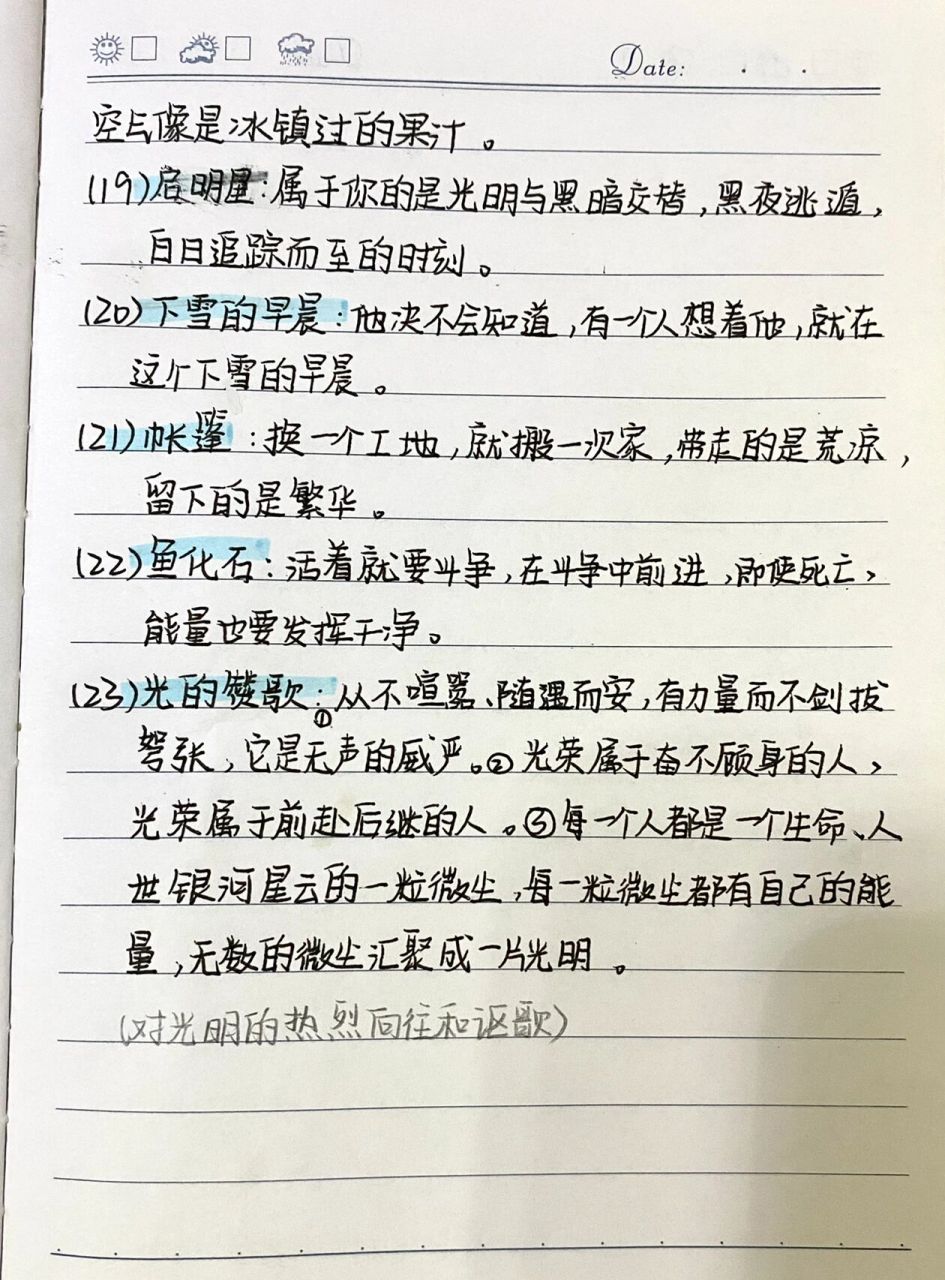 Date: . .
空气像是冰镇过的果汁。
(19)启明星:属于你的是光明与黑暗交替,黑夜逃遁,
白日追踪而至的时刻。
(20)下雪的早晨:他决不会知道,有一个人想着他,就在
这个下雪的早晨。
(21)帐篷:换一个工地,就搬一次家,带走的是荒凉,
留下的是繁华。
(22)鱼化石:活着就要斗争,在斗争中前进,即使死亡,
能量也要发挥干净。
(23)光的赞歌:①从不喧嚣、随遇而安,有力量而不剑拔
弩张,它是无声的威严。②光荣属于奋不顾身的人,
光荣属于前赴后继的人。③每一个人都是一个生命、人
世银河星云的一粒微尘,每一粒微尘都有自己的能
量,无数的微尘汇聚成一片光明。
(对光明的热烈向往和讴歌)